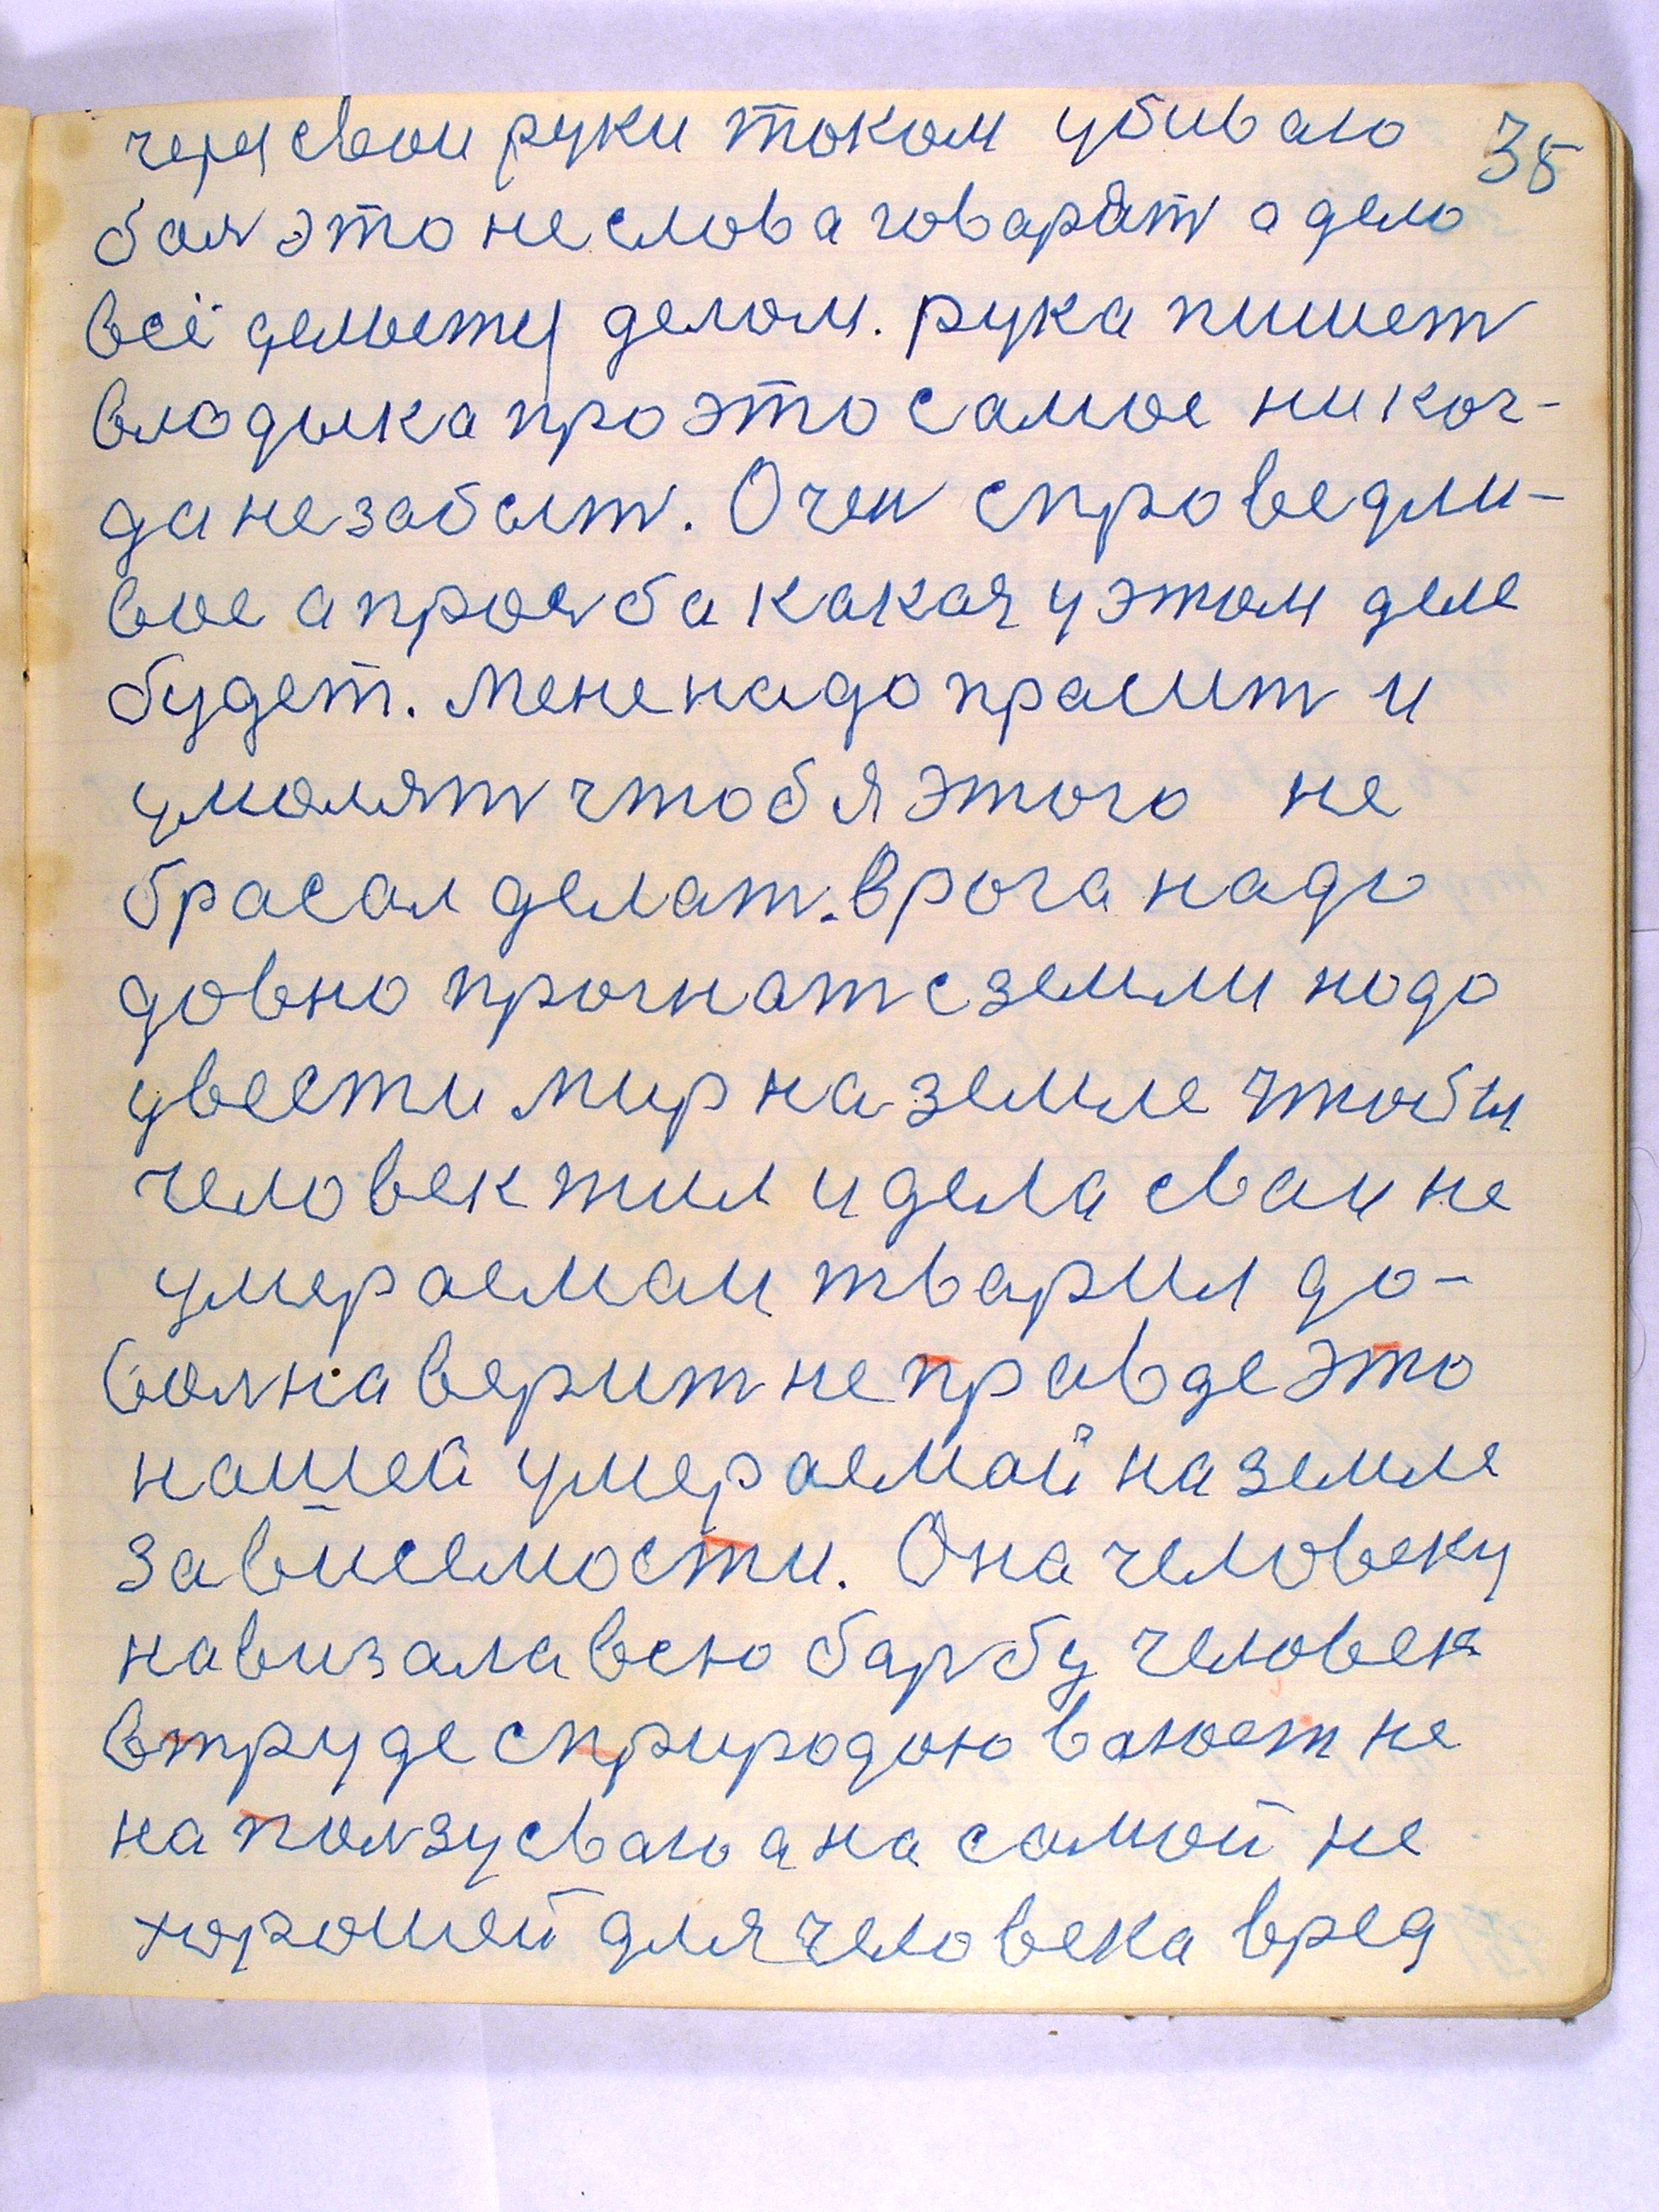 через свои руки током убивало 35
бол это не слова говарят а дело
всё делыетц делом. рука пишет
влодыка про это самое никог-
да незабыт. Очен спроведли-
вое а прозба какая у этом деле
будет. Мене надо прасит и
умолят чтоб я этого не
брасал делат. Врога надо
довно прогнат с земли нодо
увести мир на земле чтобы
человек жил и дела сваи не
умераемаи тварил до-
волна верит не правде это
нашей умераемай на земле
зависемости. Она человеку
навизала всю барбу человек
в труде с природою ваюет не
на ползу сваю а на самой не
хорошей для человека вред